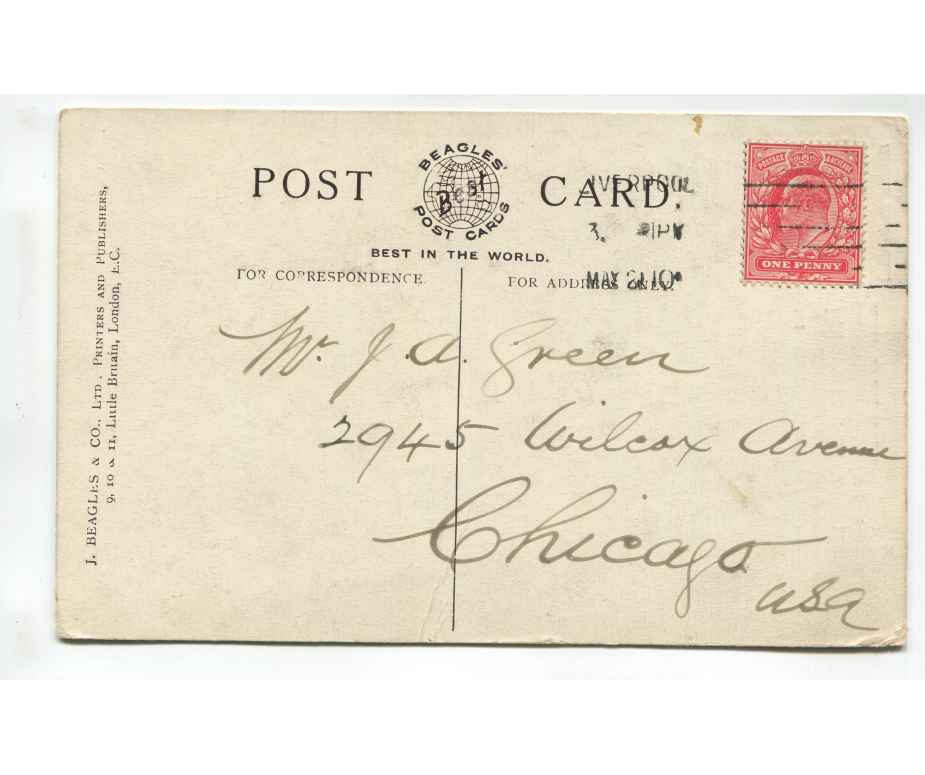 POST CARD.
BEAGLES'
Best
POST CARDS
BEST IN THE WORLD.
FOR CORRESPONDENCE
FOR ADDRESS ONLY.
IVERPOOL
MAY 21 10
POSTAGE
ONE PENNY
Mr. J. A. Green
2945 Wilcox Avenue
Chicago
USA
J. BEAGLES & CO., LTD., PRINTERS AND PUBLISHERS,
9, 10 & 11, Little Britain, London, E.C.